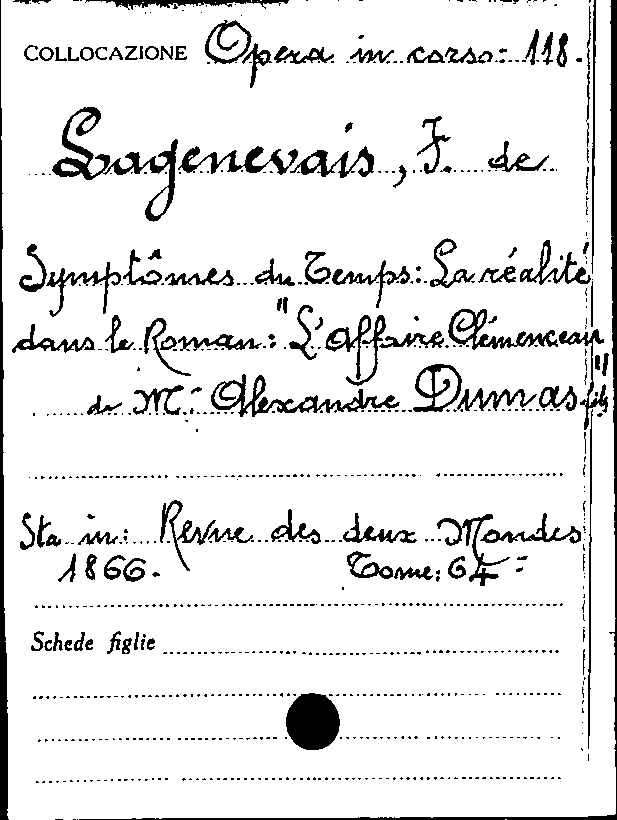 COLLOCAZIONE Opera in corso: 118.
Lagenevais, F. de
Symptômes du Temps: La réalité
dans le Roman: "L'Affaire Clémenceau"
de Mr. Alexandre Dumas fils
Sta in: Revue des deux Mondes
1866. Tome: 64=
Schede figlie